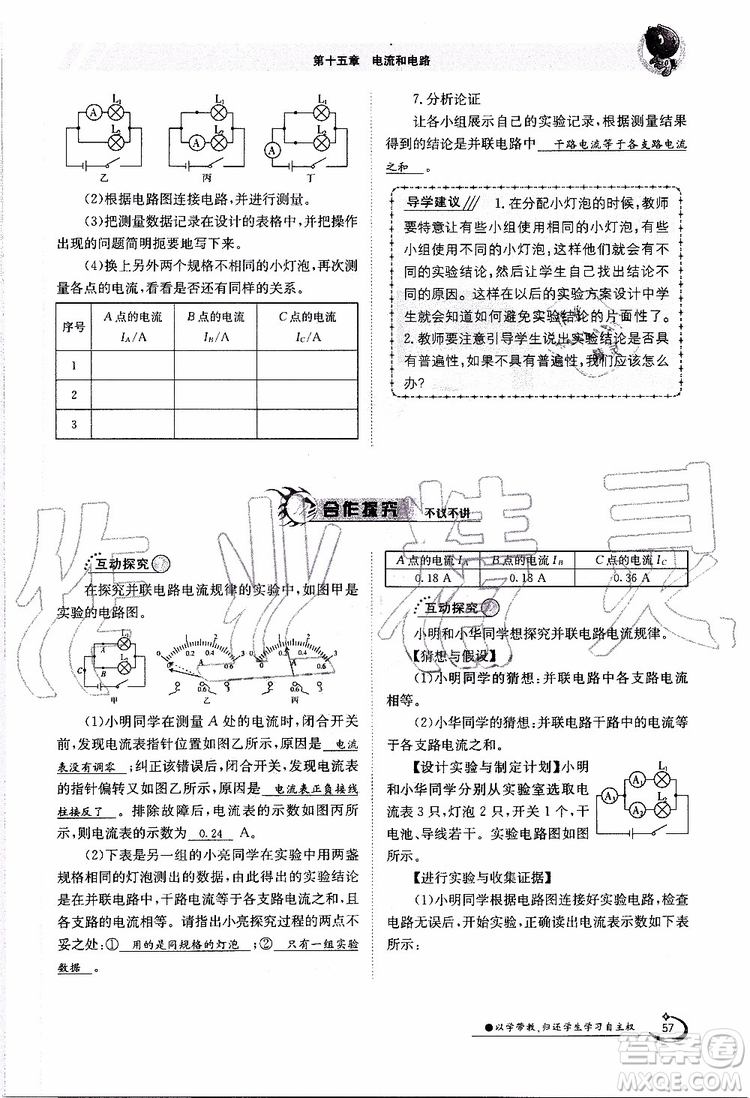 第十五章 电流和电路
L₁
A
L₂
乙
L₁
A
L₂
丙
L₁
L₂
A
丁
(2)根据电路图连接电路,并进行测量。
(3)把测量数据记录在设计的表格中,并把操作
出现的问题简明扼要地写下来。
(4)换上另外两个规格不相同的小灯泡,再次测
量各点的电流,看看是否还有同样的关系。
序号 A点的电流 I_A/A B点的电流 I_B/A C点的电流 I_C/A
1
2
3
7.分析论证
让各小组展示自己的实验记录,根据测量结果
得到的结论是并联电路中 干路电流等于各支路电流
之和 。
导学建议 1.在分配小灯泡的时候,教师
要特意让有些小组使用相同的小灯泡,有
些小组使用不同的小灯泡,这样会得出不
同的实验结论,然后让学生自己找出结论不
同的原因。这样在以后的实验方案设计中学
生就会知道如何避免实验结论的片面性了。
2.教师要注意引导学生说出实验结论是否具
有普遍性,如果不具有普遍性,我们应该怎么
办?
合作探究 不议不讲
互动探究1
在探究并联电路电流规律的实验中,如图甲是
实验的电路图。
甲 乙 丙
(1)小明同学在测量A处的电流时,闭合开关
前,发现电流表指针位置如图乙所示,原因是 电流
表没有调零 ;纠正该错误后,闭合开关,电流表
的指针偏转又如图乙所示,原因是 电流表正负接线
柱接反了 。排除故障后,电流表的示数如图丙所
示,则电流表的示数为 0.24 A。
(2)下表是另一组的小亮同学在实验中用两盏
规格相同的灯泡测出的数据,由此得出的实验结论
是并联电路中,干路电流等于各支路电流之和,且支
路的电流相等。请指出小亮探究过程的两点不
妥之处:① 用的是同规格的灯泡 ;② 只有一组实验
数据 。
A点的电流I_A B点的电流I_B C点的电流I_C
0.18 A 0.18 A 0.36 A
互动探究2
小明和小华同学想探究并联电路电流规律。
【猜想与假设】
(1)小明同学的猜想:并联电路中各支路电流
相等。
(2)小华同学的猜想:并联电路干路的电流等
于各支路电流之和。
【设计实验与制定计划】小明
和小华同学分别从实验室选取电
流表3只,灯泡2只,开关1个,干
电池、导线若干。实验电路图如图
所示。
L₁
A₁
L₂
A₂
A₃
【进行实验与收集证据】
(1)小明同学根据电路图连接好实验电路,检查
电路无误后,开始实验,正确读出电流表示数如下表
所示:
●以学带教,归还学生学习自主权
57
作业精灵
答案圈